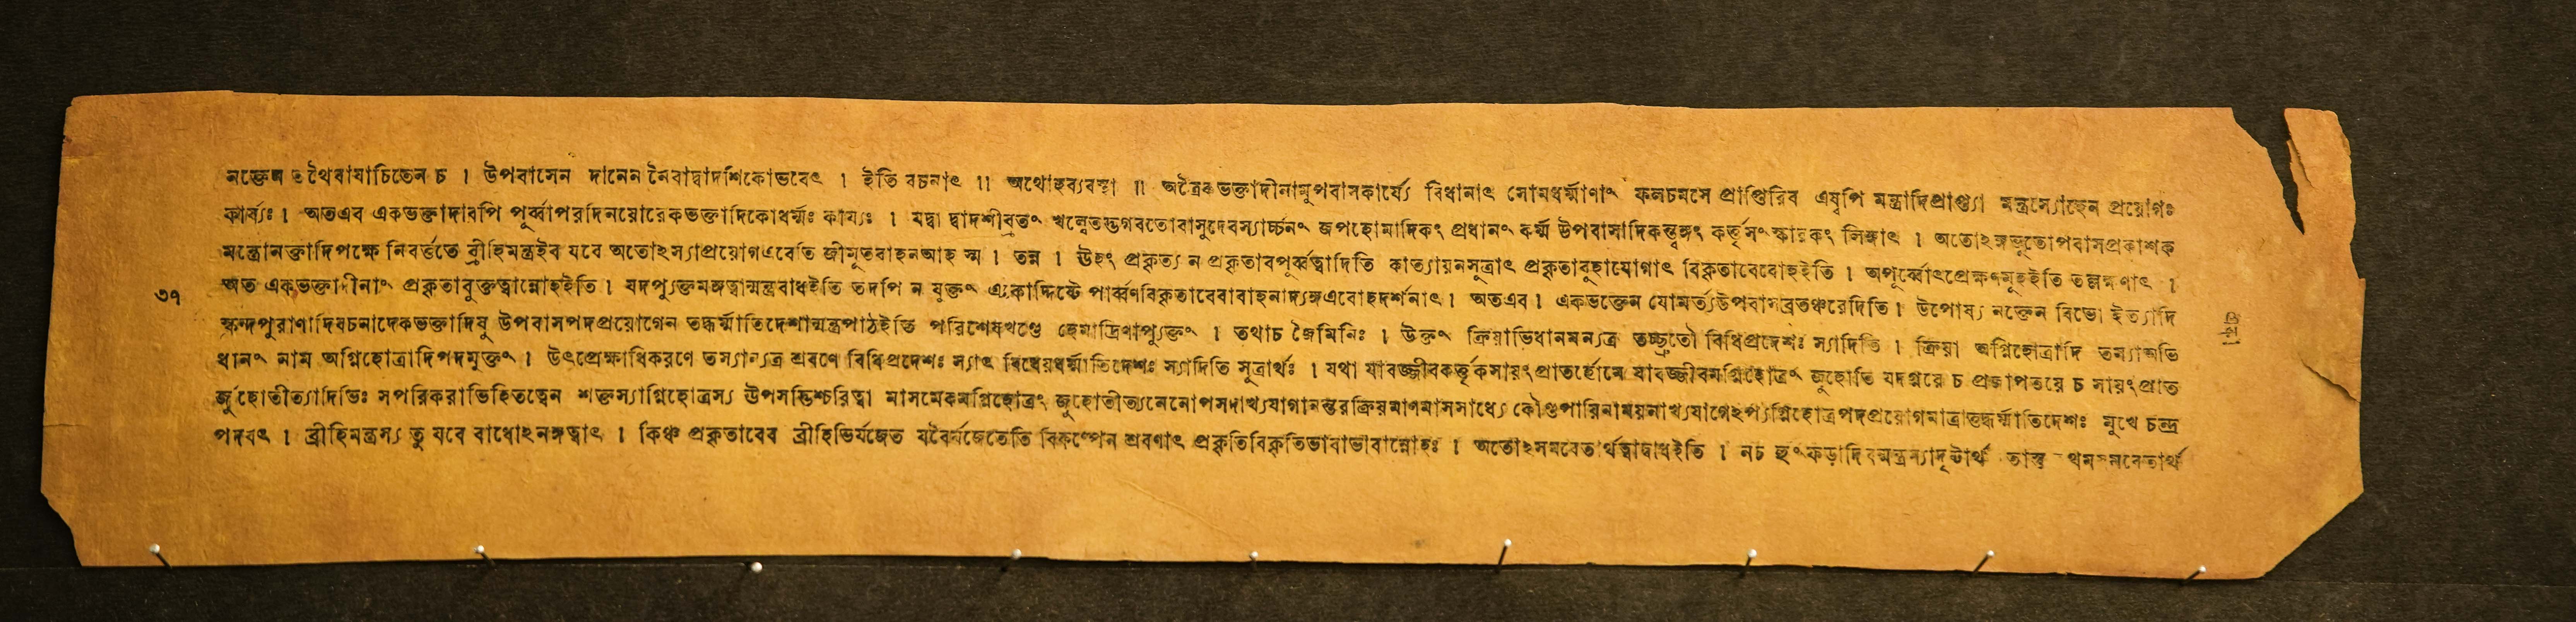 নক্তেন তথৈবাযাচিতেন চ । উপবাসেন দানেন নৈবাদ্বাদশিকোভবেৎ । ইতি বচনাৎ ।। অথোহব্যবস্থা ।। অত্রৈকভক্তাদীনামুপবাসকার্য্যে বিধানাৎ সোমধর্ম্মাণাং ফলচমসে প্রাপ্তিরিব এষ্বপি মন্ত্রাদিপ্রাপ্ত্যা মন্ত্রস্যোহেন প্রয়োগঃ
কার্য্যঃ । অতএব একভক্তাদাবপি পূর্ব্বাপরদিনয়োরেকভক্তাদিকোধর্ম্মঃ কায্যঃ । যদ্বা দ্বাদশীব্রতং খল্বেতদ্ভগবতোবাসুদেবস্যার্চ্চনং জপহোমাদিকং প্রধানং কর্ম্ম উপবাসাদিকন্ত্বঙ্গং কর্ত্তৃসংস্কারকং লিঙ্গাৎ । অতোঽঙ্গভূতোপবাসপ্রকাশক
মন্ত্রোনক্তাদিপক্ষে নিবর্ত্ততে ব্রীহিমন্ত্রইব যবে অতোঽস্যাপ্রয়োগএবেতি জীমূতবাহনআহ স্ম । তন্ন । ঊহং প্রকৃত্য ন প্রকৃতাবপূর্ব্বত্বাদিতি কাত্যায়নসূত্রাৎ প্রকৃতাবূহাযোগাৎ বিকৃতাবেবোহইতি । অপূর্ব্বোৎপ্রেক্ষণমূহইতি তল্লক্ষণাৎ ।
অত একভক্তাদীনাং প্রকৃতাবুক্তত্বান্নোহইতি । যদপ্যুক্তমঙ্গত্বান্মন্ত্রবাধইতি তদপি ন যুক্তং একোদ্দিষ্টে পার্ব্বণবিকৃতাবেবাবাহনাদ্যঙ্গএবোহদর্শনাৎ । অতএব । একভক্তেন যোমর্ত্ত্যউপবাসব্রতঞ্চরেদিতি । উপোষ্য নক্তেন বিভো ইত্যাদি
স্কন্দপুরাণাদিবচনাদেকভক্তাদিষু উপবাসপদপ্রয়োগেন তদ্ধর্ম্মাতিদেশান্মন্ত্রপাঠইতি পরিশেষখণ্ডে হেমাদ্রিণাপ্যুক্তং । তথাচ জৈমিনিঃ । উক্তং ক্রিয়াভিধানমন্যত্র তচ্ছ্রুতৌ বিধিপ্রদেশঃ স্যাদিতি । ক্রিয়া অগ্নিহোত্রাদি তস্যাঅভি
ধানং নাম অগ্নিহোত্রাদিপদমুক্তং । উৎপ্রেক্ষাধিকরণে তস্যান্যত্র শ্রবণে বিধিপ্রদেশঃ স্যাৎ বিধেয়ধর্ম্মাতিদেশঃ স্যাদিতি সূত্রার্থঃ । যথা যাবজ্জীবকর্ত্তৃকসায়ংপ্রাতর্হোমে যাবজ্জীবমগ্নিহোত্রং জুহোতি যদগ্নয়ে চ প্রজাপতয়ে চ সায়ংপ্রাত
র্জুহোতীত্যাদিভিঃ সপরিকরাভিহিতত্বেন শক্তস্যাগ্নিহোত্রস্য ঊপসদ্ভিশ্চরিত্বা মাসমেকমগ্নিহোত্রং জুহোতীত্যনেনোপসদাখ্যযাগানন্তরক্রিয়মাণমাসসাধ্যে কৌণ্ডপায়িনাময়নাখ্যযাগেঽপ্যগ্নিহোত্রপদপ্রয়োগমাত্রাত্তদ্ধর্ম্মাতিদেশঃ মুখে চন্দ্র
পদবৎ । ব্রীহিমন্ত্রস্য তু যবে বাধোঽনঙ্গত্বাৎ । কিঞ্চ প্রকৃতাবেব ব্রীহিভির্যজেত যবৈর্যজেতেতি বিকল্পেন শ্রবণাৎ প্রকৃতিবিকৃতিভাবাভাবান্নোহঃ । অতোঽসমবেতার্থত্বাদ্বাধইতি । নচ হুংফড়াদিবন্মন্ত্রস্যাদৃষ্টার্থ
৩৭